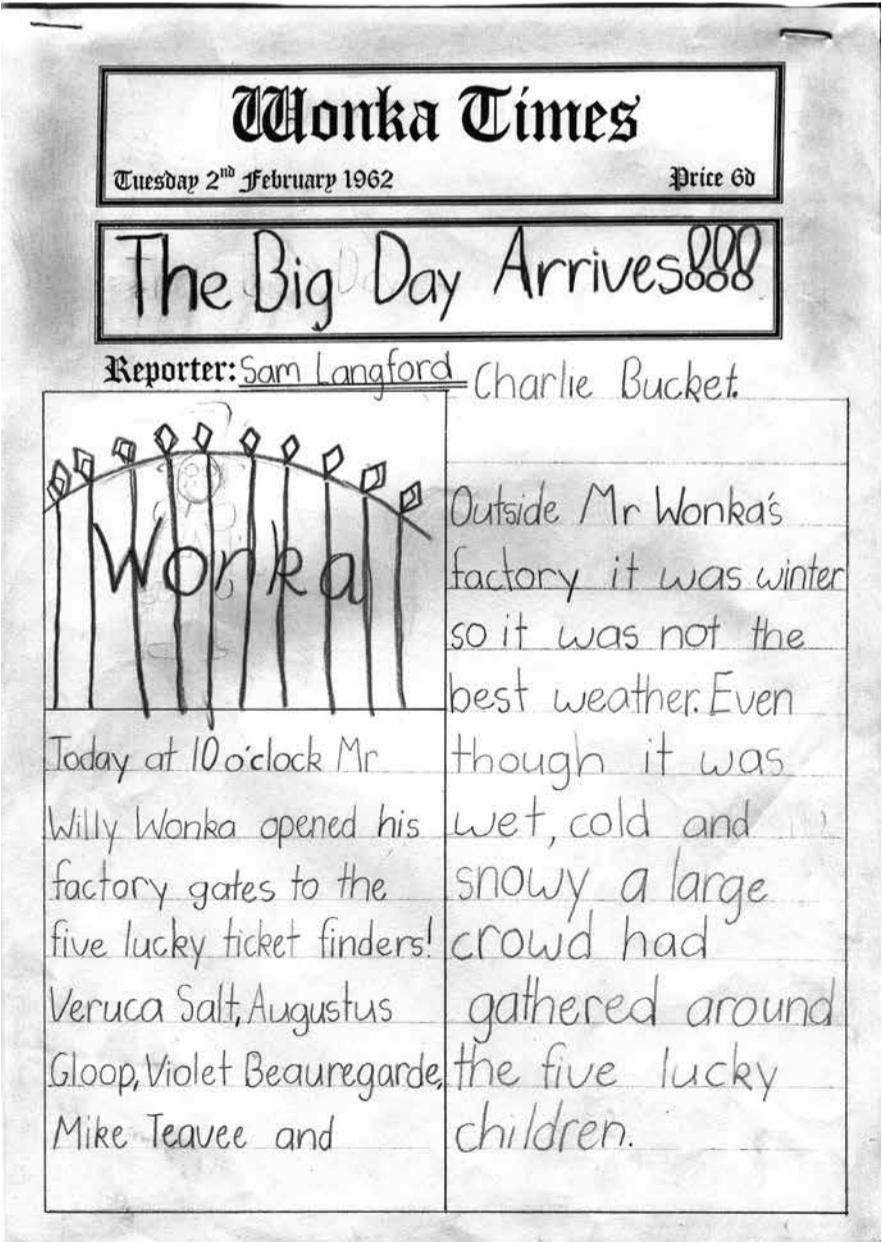 Wonka Times
Tuesday 2nd February 1962 Price 6d
The Big Day Arrives!!!
Reporter: Sam Langford
Wonka
Today at 10 o'clock Mr
Willy Wonka opened his
factory gates to the
five lucky ticket finders!
Veruca Salt, Augustus
Gloop, Violet Beauregarde,
Mike Teavee and
Charlie Bucket.
Outside Mr Wonka's
factory it was winter
so it was not the
best weather. Even
though it was
wet, cold and
snowy a large
crowd had
gathered around
the five lucky
children.